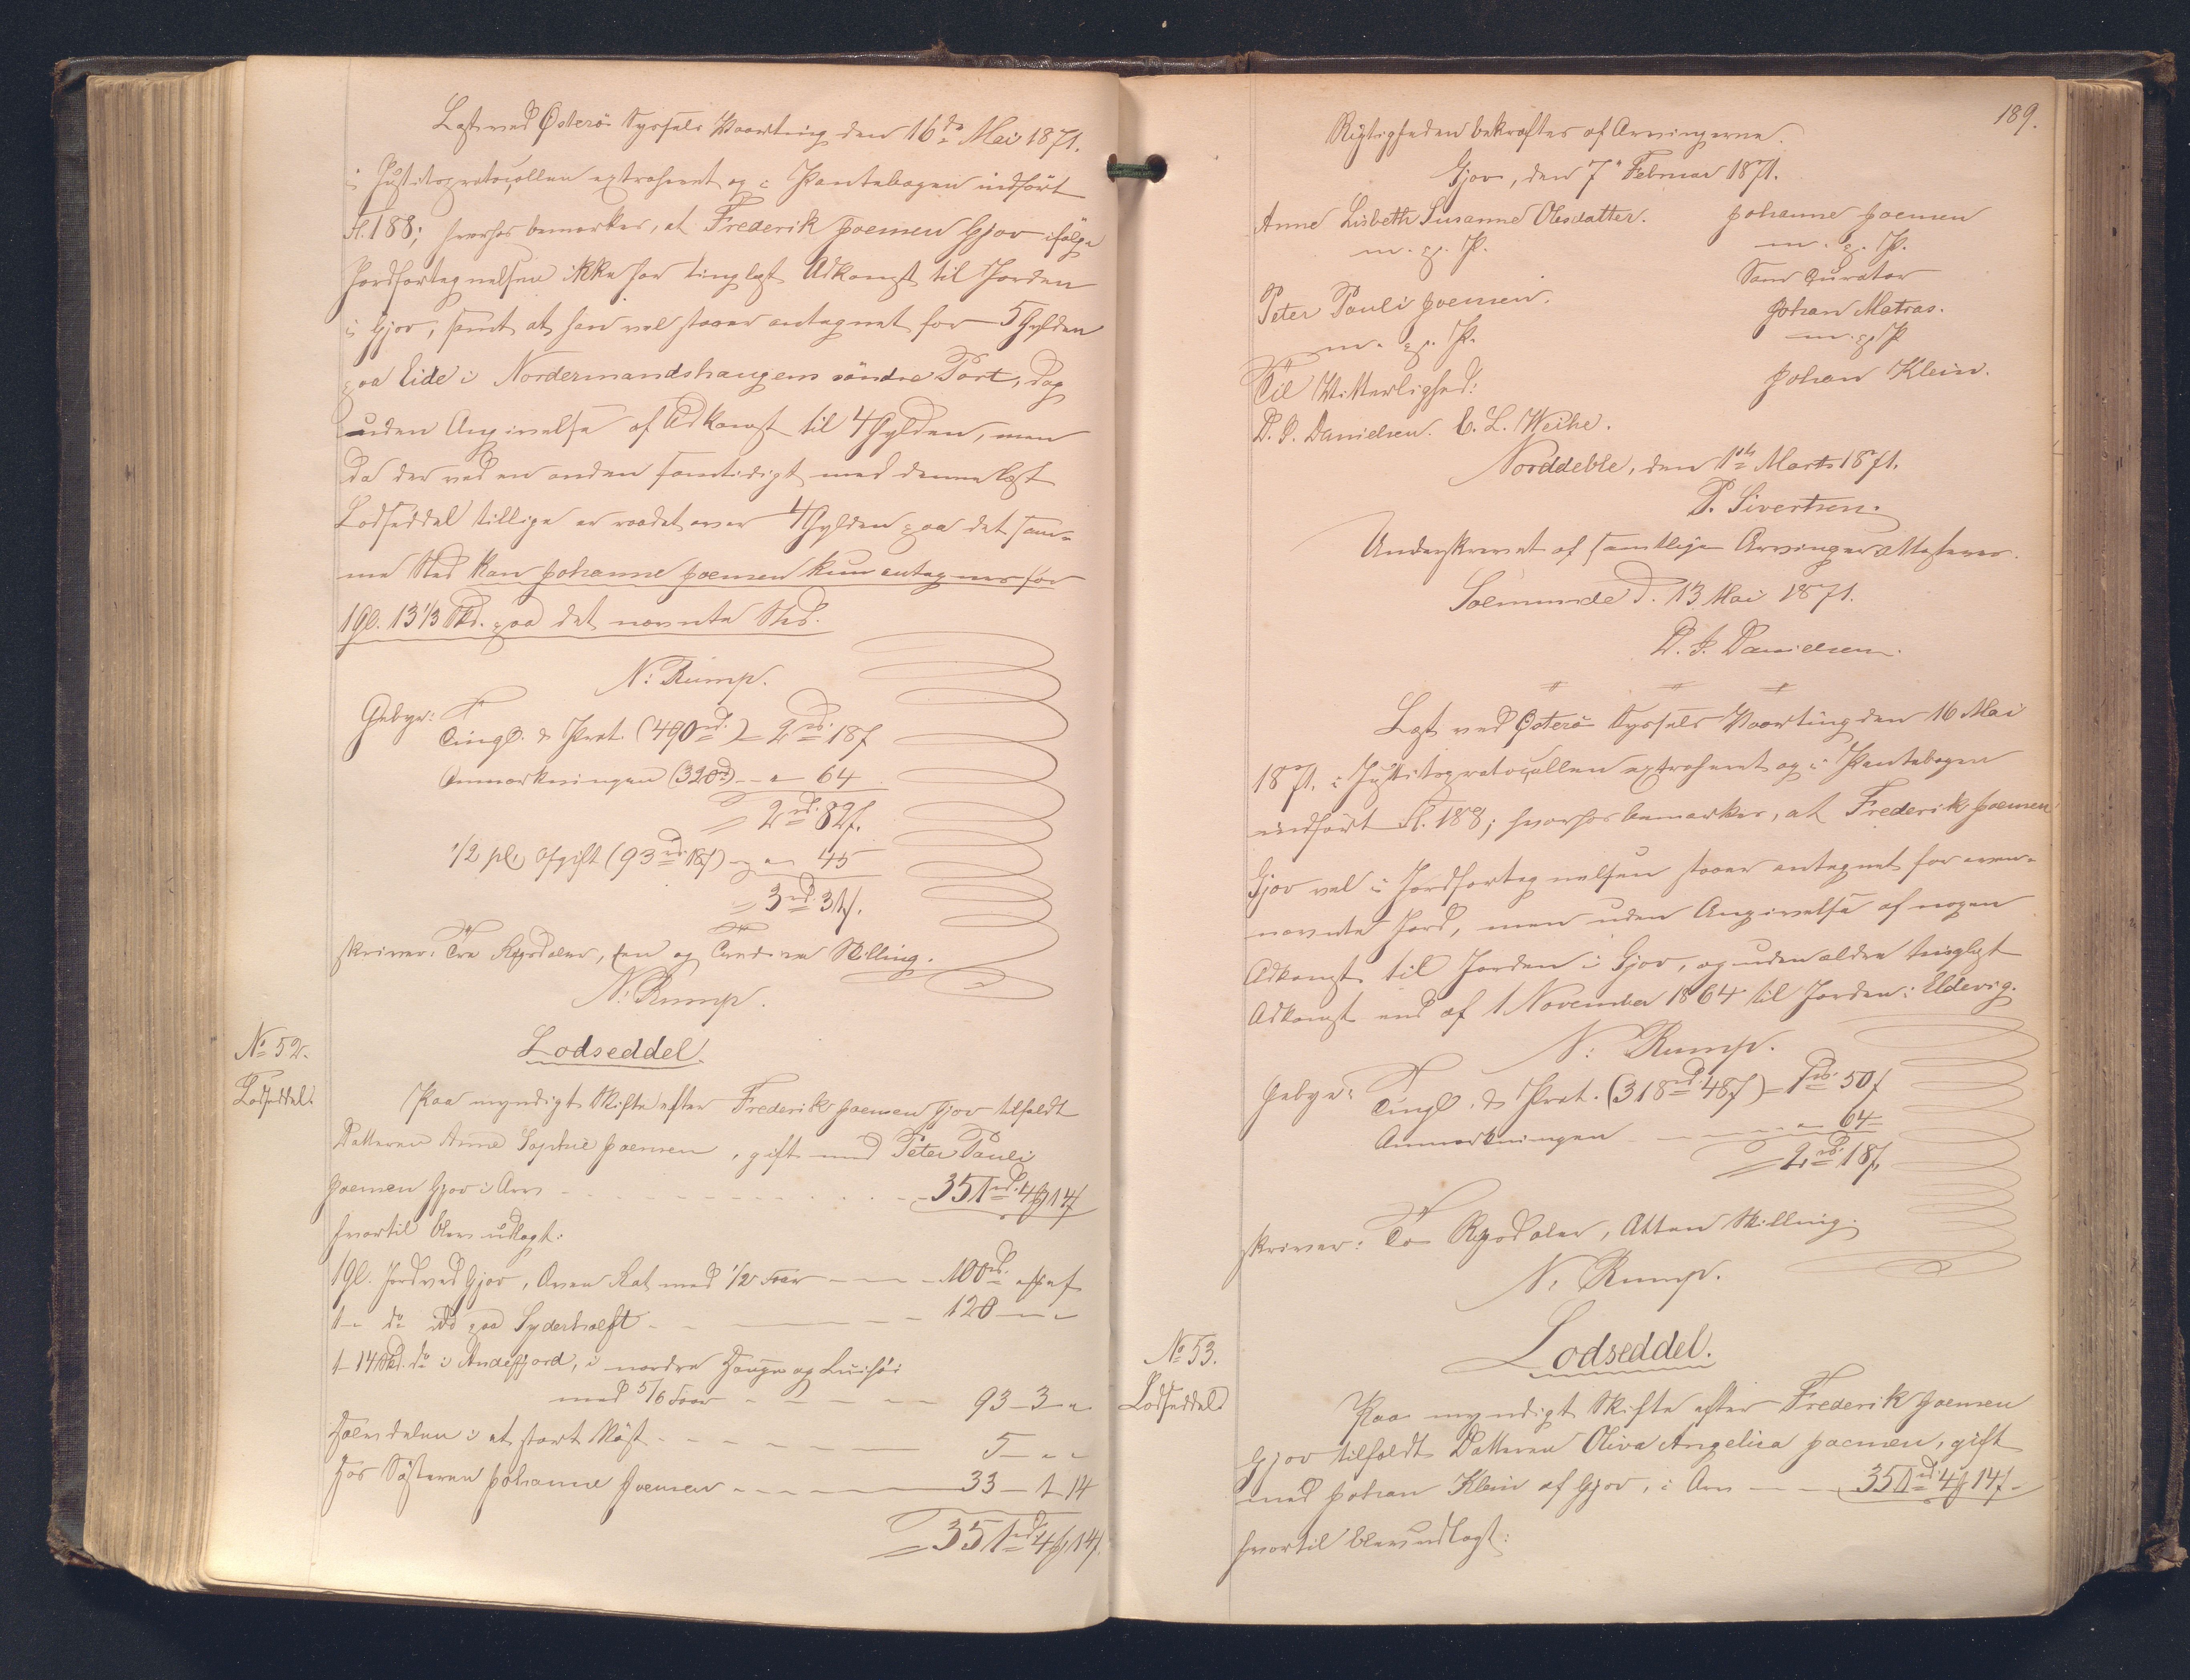 Læst ved Østerø Syssels Vaarting den 16de Mai 1871.
i Justitsprotocollen extraheret og i Pantebogen indført
Fl. 188; hvorhos bemærkes, at Frederik Joensen Gjov ifølge
Jordfortegnelsen ikke har tinglæst Adkomst til Jorden
i Gjov, samt at han vel staaer antegnet for 5 Gylden
paa Eide i Nordermandshaugens søndre Part, dog
uden Angivelse af Adkomst til 4 Gylden, men
da der ved en anden samtidigt med denne læst
Lodseddel tillige er raadet over 4 Gylden paa det sam-
me Sted kan Johanne Joensen kun antegnes for
1 Gl. 13 1/3 Skd. paa det nævnte Sted.
N: Rump.
Gebyr:
Tingl. & Prot. (490 rd.) = 2 rd. 18 f
Anmærkningen (320 d) - " 64
= 2 rd. 82 f.
1/2 pCt Afgift (93 rd 18 f) - " 45
= 3 rd. 31 f.
skriver: Tre Rigsdaler, een og Tredive Skilling.
N: Rump.
№ 52.
Lodseddel.
Lodseddel.
Paa myndigt Skifte efter Frederik Joensen Gjov tilfaldt
Datteren Anne Sophie Joensen, gift med Peter Pauli
Joensen Gjov i Arv - - - 351 rd. 4 ẞ 14 f
hvortil blev udlagt:
1 Gl. Jord ved Gjov, Oven Rat med 1/2 Foer - - - 100 rd. " ẞ " f
1 - do do paa Syderhalft - - - 120 - "
1 - 14 Skd. do i Andefjord, i nordre Hauge og
med 5/6 Foer - - - 93 - 3 - "
Halvdelen i et stort Nøst - - - 5 - " "
Hos Søsteren Johanne Joensen - - - 33 - 1 - 14
= 351 rd. 4 ẞ 14 f.
189.
Rigtigheden bekræftes af Arvingerne.
Gjov, den 7de Februar 1871.
Anne Lisbeth Susanne Olesdatter. Johanne Joensen
m. p. P. m. p. P.
Som Curator
Peter Pauli Joensen. Johan Matras.
m. p. P. m. p. P
Til Vitterlighed: Johan Klein.
D. J. Danielsen. C. L. Weihe.
Norddeble, den 1ste Marts 1871.
P. Sivertsen.
Underskrevet af samtlige Arvinger attesterer.
Selmunde d. 13 Mai 1871.
D. J. Danielsen.
Læst ved Østerø Syssels Vaarting den 16 Mai
1871. i Justitsprotocollen extraheret og i Pantebogen
indført Fl. 188; hvorhos bemærkes, at Frederik Joensen
Gjov vel i Jordfortegnelsen staaer antegnet for oven-
nævnte Jord, men uden Angivelse af nogen
Adkomst til Jorden i Gjov, og uden ældre tinglyst
Adkomst end af 1 November 1864 til Jorden i Eldevig.
N: Rump.
Gebyr:
Tingl. & Prot. (318 rd. 48 f) = 1 rd. 50 f
Anmærkningen - - - " 64
= 2 rd. 18 f.
skriver: To Rigsdaler, Atten Skilling.
N. Rump.
№ 53.
Lodseddel.
Lodseddel.
Paa myndigt Skifte efter Frederik Joensen
Gjov tilfaldt Datteren Oliva Angelica Joensen, gift
med Johan Klein af Gjov, i Arv - - - 351 rd. 4 ẞ 14 f.
hvortil blev udlagt: